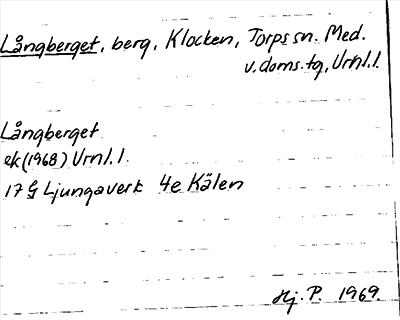 Långberget, berg, Klocken, Torps sn. Med.
v. doms. tg, Urnl. l.
Långberget
ek (1968) Urnl. l.
17 G Ljungaverk 4e Kälen
Hj. P. 1969.